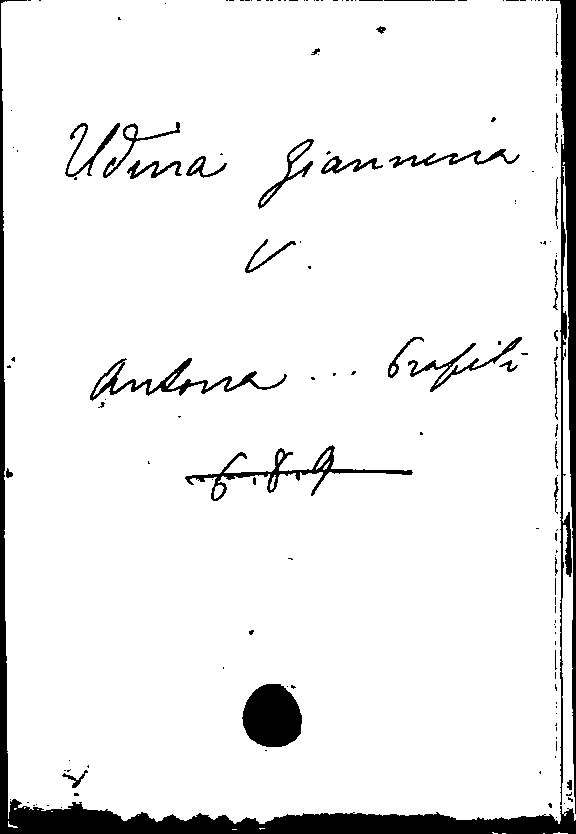 Udina Giannina
V.
Antona ... Trafili
6.8.9